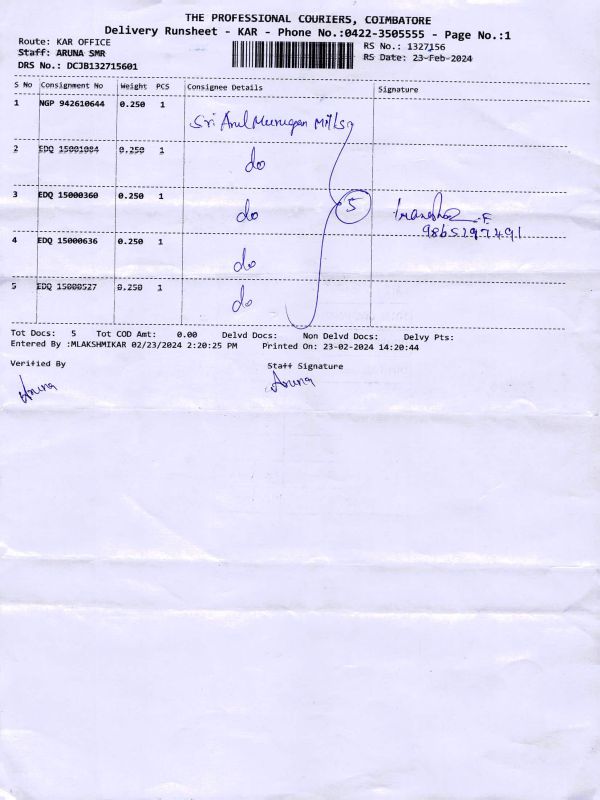 THE PROFESSIONAL COURIERS, COIMBATORE
Delivery Runsheet - KAR - Phone No.:0422-3505555 - Page No.:1
Route: KAR OFFICE
RS No.: 1327156
Staff: ARUNA SMR
RS Date: 23-Feb-2024
DRS No.: DCJB132715601
S No Consignment No Weight PCS Consignee Details Signature
1 NGP 942610644 0.250 1
Sri Arul Murugan Mills
2 EDQ 15001084 0.250 1
do
3 EDQ 15000360 0.250 1
do 5
9865297491
4 EDQ 15000636 0.250 1
do
5 EDQ 15000527 0.250 1
do
Tot Docs: 5 Tot COD Amt: 0.00 Delvd Docs: Non Delvd Docs: Delvy Pts:
Entered By :MLAKSHMIKAR 02/23/2024 2:20:25 PM Printed On: 23-02-2024 14:20:44
Verified By Staff Signature
Aruna Aruna